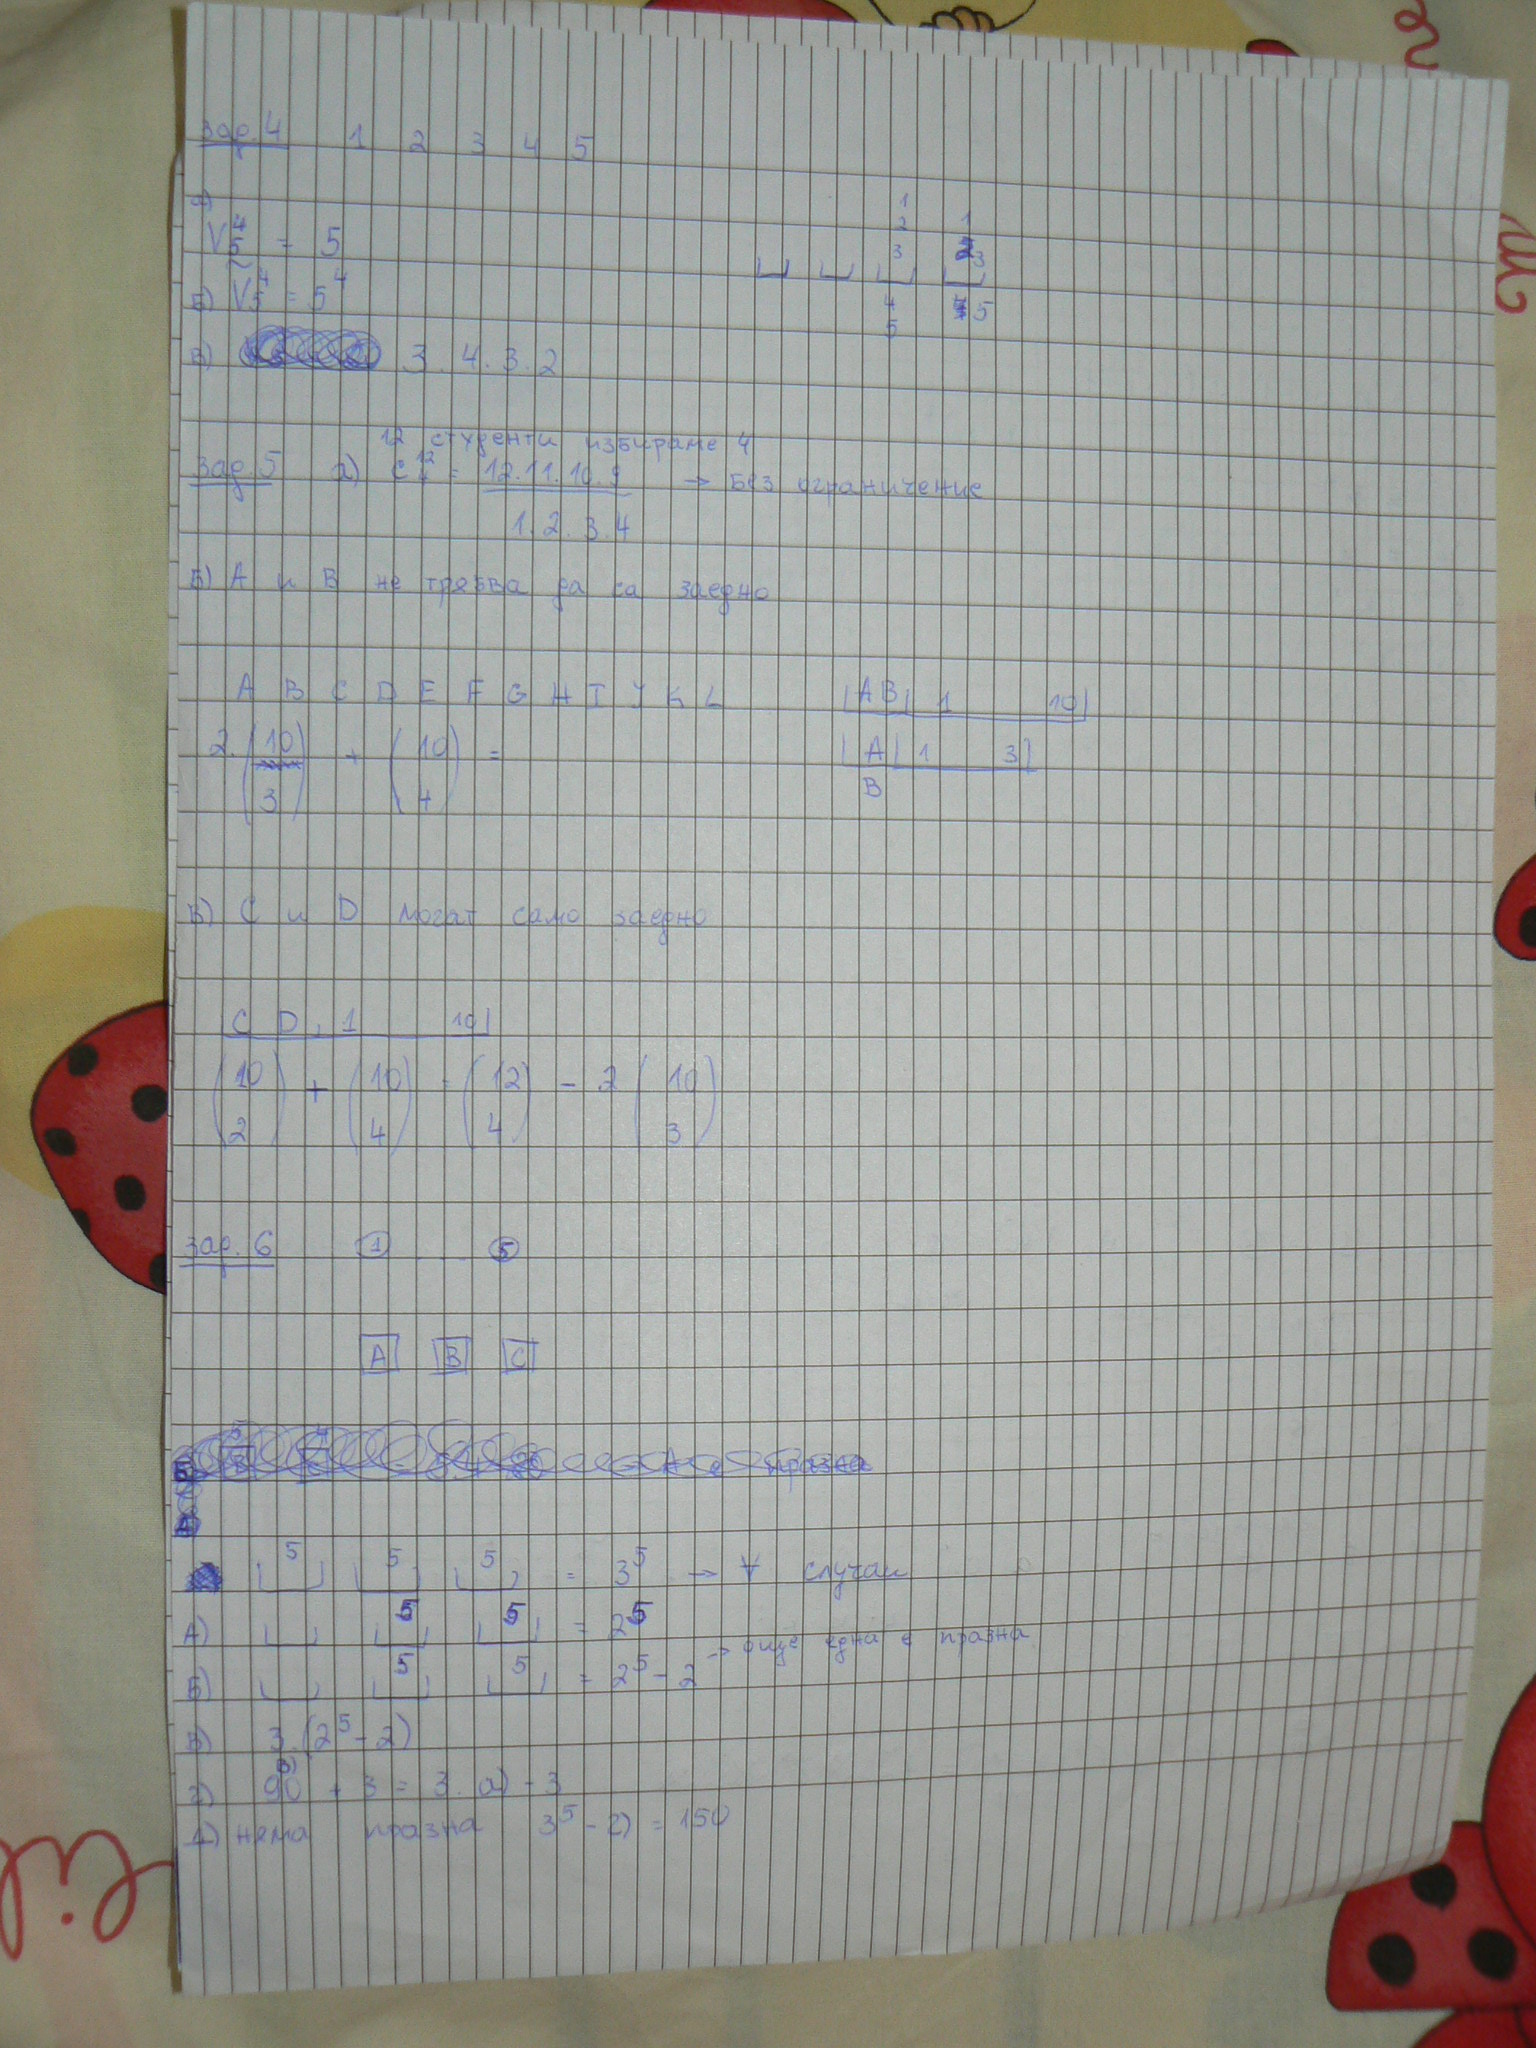 зад. 4 1 2 3 4 5
а)
V₅⁴ = 5
Б) Ṽ₅⁴ = 5⁴
1
2
3
4
5
1
3
5
В) 3 . 4 . 3 . 2
12 студенти избираме 4
Зад. 5 а) C₄¹² = 12.11.10.9 → Без ограничение
1.2.3.4
Б) А и В не трябва да са заедно
A B C D E F G H I J K L |AB| 1 10|
2.(10 3) + (10 4) = |A| 1 3|
B
В) C и D могат само заедно
|C D, 1 10|
(10 2) + (10 4) = (12 4) - 2 (10 3)
зад. 6 1 ... 5
A B C
5 5 5 = 3⁵ → ∀ случаи
А) 5 5 = 2⁵
Б) 5 5 = 2⁵ - 2 → още една е празна
В) 3.(2⁵ - 2)
г) 90 + 3 = 3. а) - 3
Д) няма празна 3⁵ - г) = 150